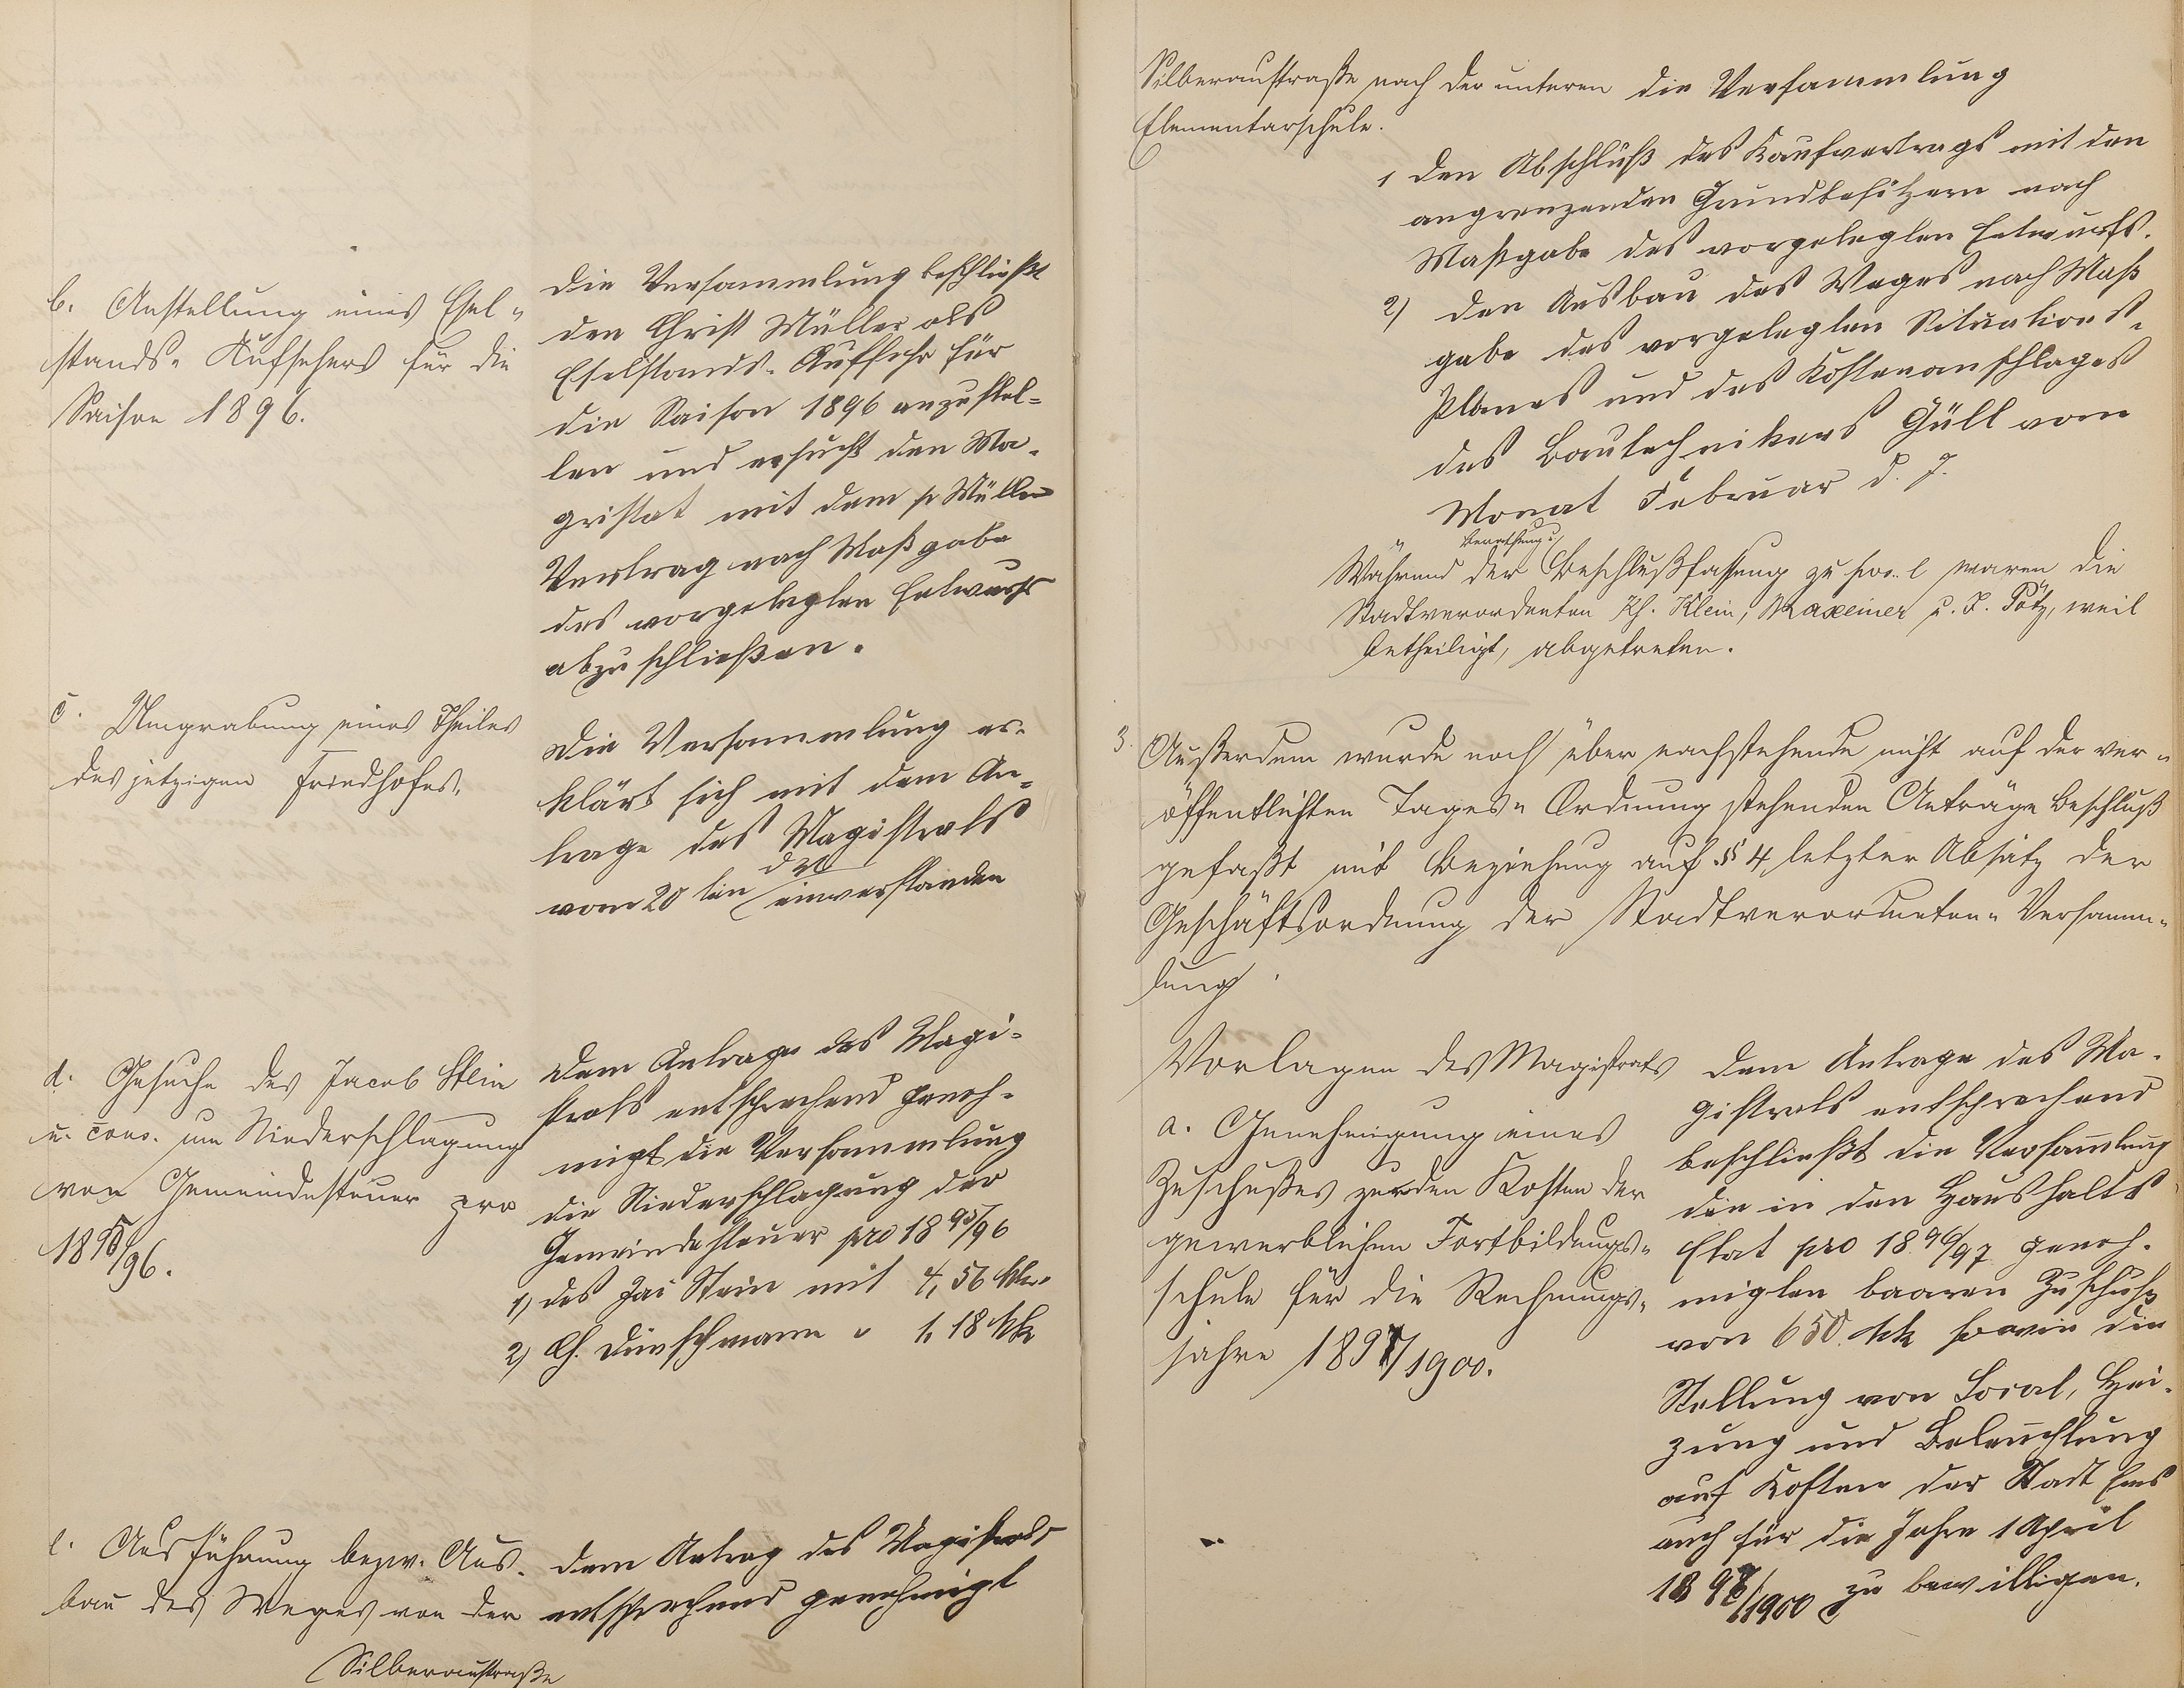 b. Anstellung eines Esel-
stands-Aufsehers für die
Saison 1896.
Die Versammlung beschließt
den Christ Müller als
Eselstands-Aufseher für
die Saison 1896 anzustel=
len und ersucht den Ma-
gistrat mit dem p Müller
Vertrag nach Maßgabe
des vorgelegten Entwurfs
abzuschließen.
c. Umgrabung eines Theiles
des jetzigen Friedhofes.
Die Versammlung er-
klärt sich mit dem An-
trage des Magistrats
vom 20 ten d M einverstanden
d. Gesuche des Jacob Stein
u. Cons. um Niederschlagung
von Gemeindesteuer pro
1895/96.
Dem Antrage des Magi=
strats entsprechend geneh-
migt die Versammlung
die Niederschlagung der
Gemeindesteuer pro 1895/96
1) des Jac Stein mit 4,56 Mk.
2) Ch. Dünschmann " 1,18 Mk
e. Ausführung bezw. Aus-
bau des Weges von der
Silberaustraße
Dem Antrag des Magistrats
entsprechend genehmigt
Silberaustraße nach der unteren
Elementarschule.
die Versammlung
1 den Abschluß des Kaufvertrags mit den
angrenzenden Grundbesitzern nach
Maßgabe des vorgelegten Entwurfs.
2) den Ausbau des Weges nach Maß
gabe des vorgelegten Situations-
Planes und des Kostenanschlages
des Bautechnikers Güll vom
Monat Februar d. J.
Während der Berathung u. Beschlußfassung zu pos. e waren die
Stadtverordneten Kh. Klein, Maxeiner u. J. Pötz, weil
betheiligt, abgetreten.
3. Außerdem wurde noch über nachstehende nicht auf der ver-
öffentlichten Tages-Ordnung stehenden Anträge Beschluß
gefaßt mit Beziehung auf § 4 letzter Absatz der
Geschäftsordnung der Stadtverordneten-Versamm-
lung.
Vorlagen des Magistrats
a. Genehmigung eines
Zuschußes zu den Kosten der
gewerblichen Fortbildungs-
schule für die Rechnungs-
jahre 1897/1900.
Dem Antrage des Ma-
gistrats entsprechend
beschließt die Versammlung
die in den Haushalts
Etat pro 1896/97 geneh-
migten baaren Zuschuß
von 650. Mk sowie die
Stellung von Local, Hei-
zung und Beleuchtung
auf Kosten der Stadt Ems
auch für die Jahre 1 April
1897/1900 zu bewilligen.